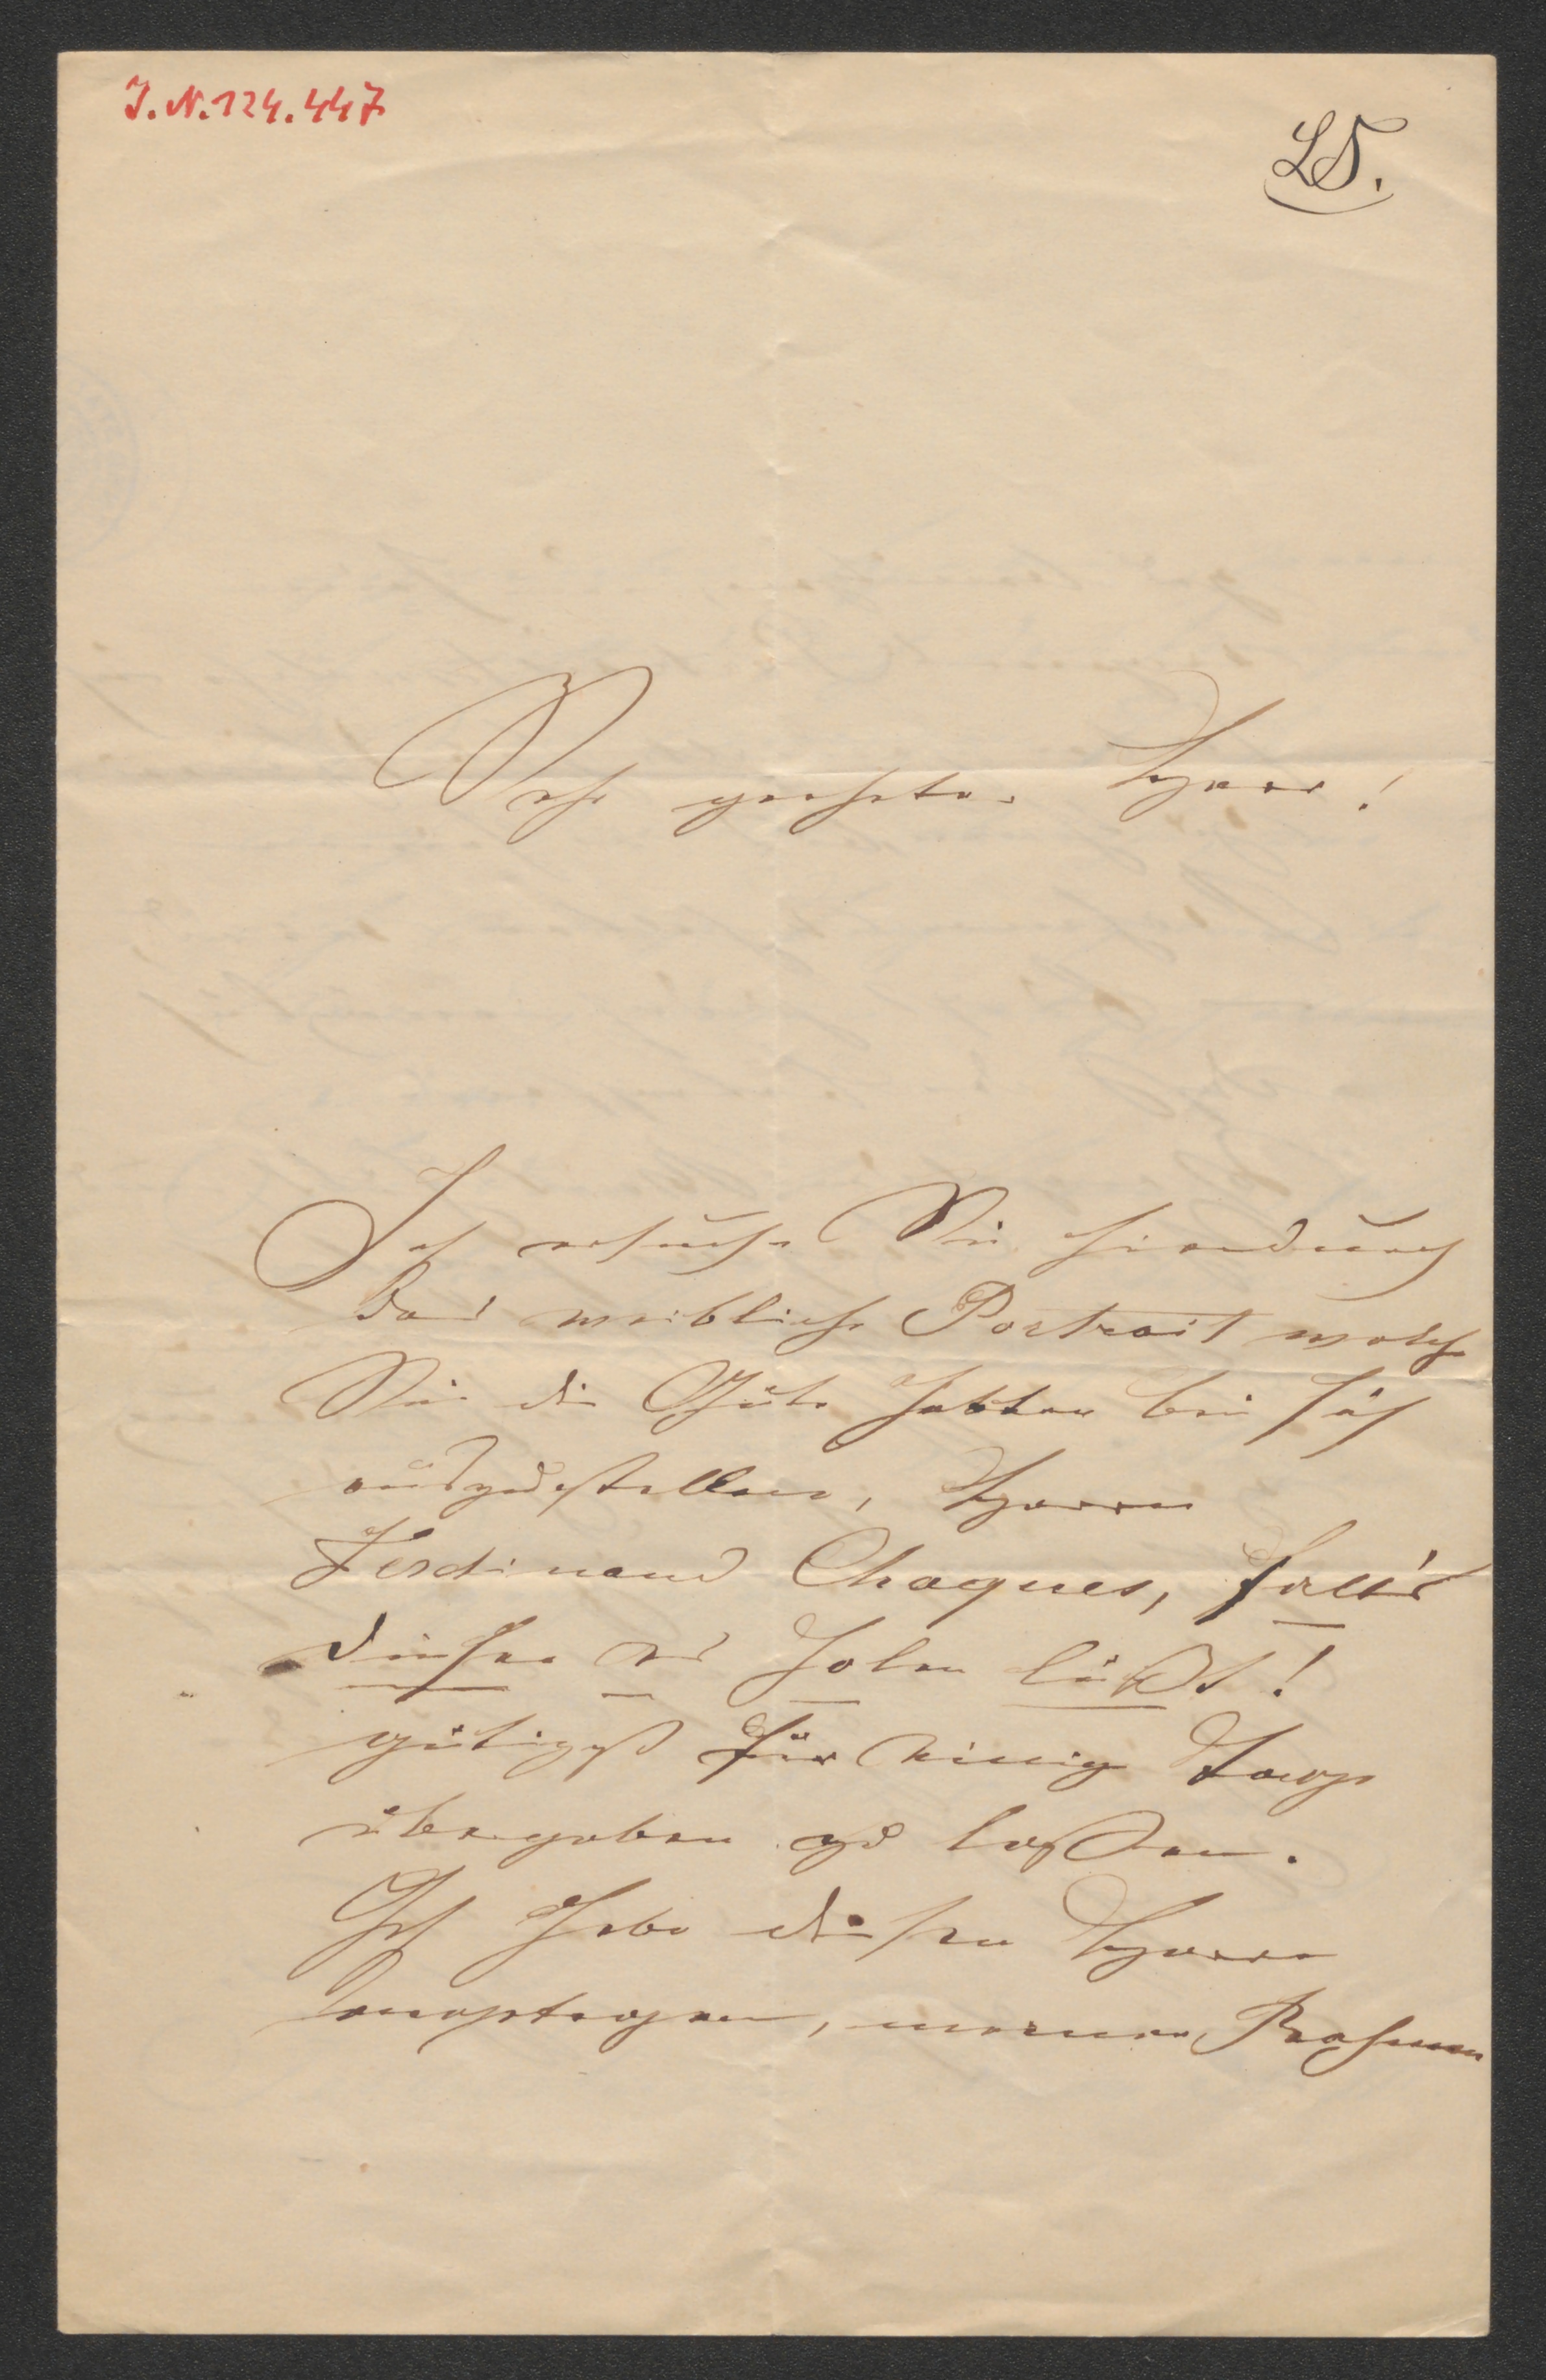 J.N. 124.447
LS.
Sehr geehrter Herr!
Ich ersuche Sie hierdurch
das weibliche Portrait welche
Sie die Güte hatten bei sich
auszustellen, Herrn
Ferdinand Chaques, fall's
dieser es holen läßt!
gütigst für einige Tage
übergeben zu laßen.
Ich habe diesen Herrn
, meinen Rahmen